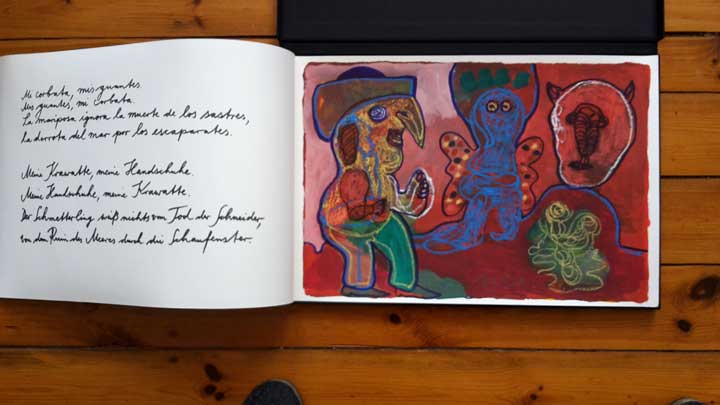 Mi corbata, mis guantes.
Mis guantes, mi corbata.
La mariposa ignora la muerte de los sastres,
la derrota del mar por los escaparates.
Meine Krawatte, meine Handschuhe.
Meine Handschuhe, meine Krawatte.
Der Schmetterling weiß nichts vom Tod der Schneider,
von dem Ruin des Meeres durch die Schaufenster.